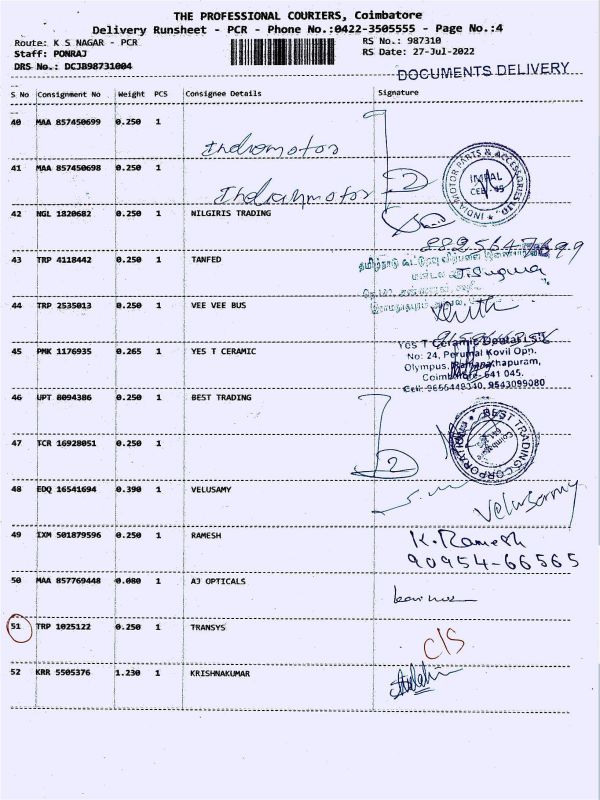 THE PROFESSIONAL COURIERS, Coimbatore
Delivery Runsheet - PCR - Phone No.:0422-3505555 - Page No.:4
Route: K S NAGAR - PCR RS No.: 987310
Staff: PONRAJ RS Date: 27-Jul-2022
DRS No.: DCJB98731004
DOCUMENTS DELIVERY
S No Consignment No Weight PCS Consignee Details Signature
40 MAA 857450699 0.250 1 Indiamotor
41 MAA 857450698 0.250 1 Indianmotor 2
INDIA MOTOR PARTS & ACCESSORIES LTD.
IMPAL
CBE - 45
42 NGL 1820682 0.250 1 NILGIRIS TRADING
43 TRP 4118442 0.250 1 TANFED
44 TRP 2535013 0.250 1 VEE VEE BUS
45 PMK 1176935 0.265 1 YES T CERAMIC
Yes T Ceramic Dental Lab
No: 24, Perumal Kovil Opp.
Olympus, Ramanathapuram,
Coimbatore- 641 045.
Cell: 9655448340, 9543099080
46 UPT 8094386 0.250 1 BEST TRADING
BEST TRADING CORPORATION
Coimbatore
47 TCR 16928051 0.250 1 2
48 EDQ 16541694 0.390 1 VELUSAMY Velusamy
49 IXM 501879596 0.250 1 RAMESH K. Ramesh
90954-66565
50 MAA 857769448 0.080 1 AJ OPTICALS
51 TRP 1025122 0.250 1 TRANSYS C/S
52 KRR 5505376 1.230 1 KRISHNAKUMAR